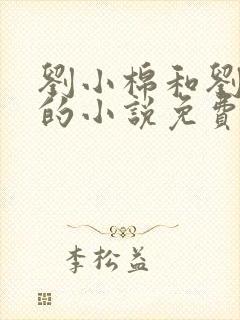 劉小棉和劉
的小說免費
李松益